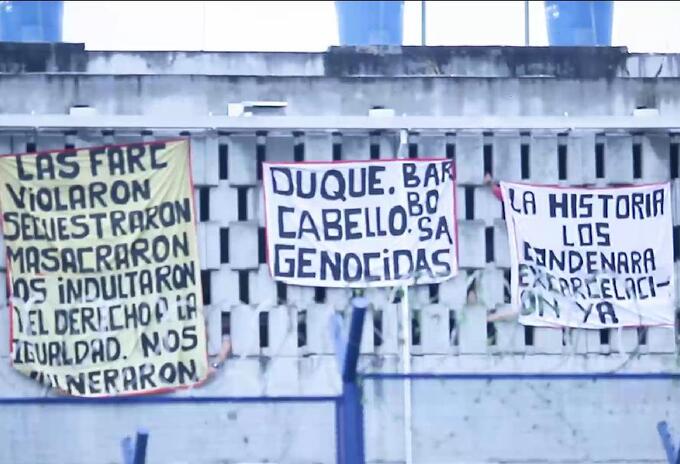 LAS FARC
VIOLARON
SECUESTRARON
MASACRARON
OS INDULTARON
Y EL DERECHO A LA
IGUALDAD. NOS
VULNERARON
DUQUE. BAR
CABELLO. BO
SA
GENOCIDAS
LA HISTORIA
LOS
CONDENARA
EXCARCELACI-
ON YA